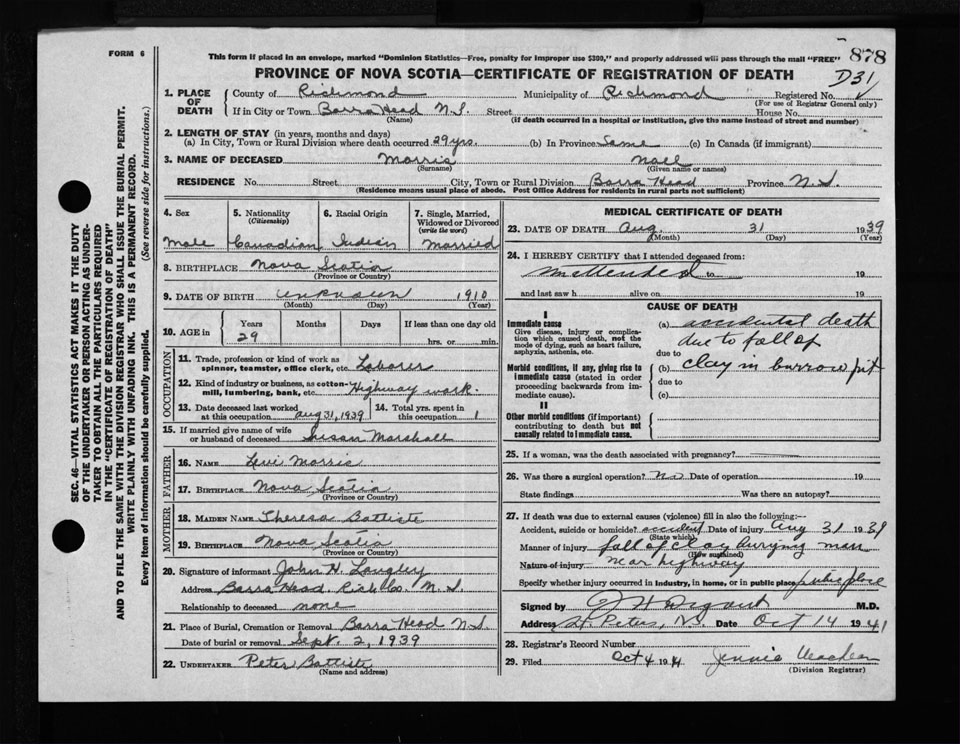 878
FORM 6
This form if placed in an envelope, marked "Dominion Statistics—Free, penalty for improper use $300," and properly addressed will pass through the mail "FREE"
D31
PROVINCE OF NOVA SCOTIA—CERTIFICATE OF REGISTRATION OF DEATH
SEC. 46—VITAL STATISTICS ACT MAKES IT THE DUTY
OF THE UNDERTAKER OR PERSON ACTING AS UNDER-
TAKER TO OBTAIN ALL THE PARTICULARS REQUIRED
IN THE "CERTIFICATE OF REGISTRATION OF DEATH"
AND TO FILE THE SAME WITH THE DIVISION REGISTRAR WHO SHALL ISSUE THE BURIAL PERMIT.
WRITE PLAINLY WITH UNFADING INK. THIS IS A PERMANENT RECORD.
Every item of information should be carefully supplied. (See reverse side for instructions.)
1. PLACE OF DEATH County of Richmond Municipality of Richmond Registered No.
(For use of Registrar General only)
If in City or Town Barra Head N.S. Street House No.
(Name) (If death occurred in a hospital or institution, give the name instead of street and number)
2. LENGTH OF STAY (in years, months and days)
(a) In City, Town or Rural Division where death occurred 29 yrs. (b) In Province Same (c) In Canada (if immigrant)
3. NAME OF DECEASED Morris Noel
(Surname) (Given name or names)
RESIDENCE No. Street City, Town or Rural Division Barra Head Province N.S.
(Residence means usual place of abode. Post Office Address for residents in rural parts not sufficient)
4. Sex 5. Nationality (Citizenship) 6. Racial Origin 7. Single, Married, Widowed or Divorced (write the word)
Male Canadian Indian Married
8. BIRTHPLACE Nova Scotia
(Province or Country)
9. DATE OF BIRTH unknown 1910
(Month) (Day) (Year)
10. AGE in Years Months Days If less than one day old
29 hrs. or min.
OCCUPATION
11. Trade, profession or kind of work as spinner, teamster, office clerk, etc. Laborer
12. Kind of industry or business, as cotton-mill, lumbering, bank, etc. Highway work.
13. Date deceased last worked at this occupation Aug 31, 1939 14. Total yrs. spent in this occupation 1
15. If married give name of wife or husband of deceased Susan Marshall
FATHER
16. NAME Levi Morris
17. BIRTHPLACE Nova Scotia
(Province or Country)
MOTHER
18. MAIDEN NAME Theresa Battiste
19. BIRTHPLACE Nova Scotia
(Province or Country)
20. Signature of informant John H. Langley
Address Barra Head, Rich Co. N.S.
Relationship to deceased none
21. Place of Burial, Cremation or Removal Barra Head N.S.
Date of burial or removal Sept. 2, 1939
22. UNDERTAKER Peter Battiste
(Name and address)
MEDICAL CERTIFICATE OF DEATH
23. DATE OF DEATH Aug. 31 1939
(Month) (Day) (Year)
24. I HEREBY CERTIFY that I attended deceased from:
unattended to 19
and last saw h alive on 19
CAUSE OF DEATH
I
Immediate cause
Give disease, injury or complication which caused death, not the mode of dying, such as heart failure, asphyxia, asthenia, etc.
(a) accidental death
due to fall of
due to
Morbid conditions, if any, giving rise to immediate cause (stated in order proceeding backwards from immediate cause).
(b) clay in burrow pit
due to
(c)
II
Other morbid conditions (if important) contributing to death but not causally related to immediate cause.
25. If a woman, was the death associated with pregnancy?
26. Was there a surgical operation? No Date of operation 19
State findings Was there an autopsy?
27. If death was due to external causes (violence) fill in also the following:—
Accident, suicide or homicide? accident Date of injury Aug 31 1939
(State which)
Manner of injury fall of clay burying man
(How sustained)
Nature of injury near highway
Specify whether injury occurred in industry, in home, or in public place public place
Signed by M.D.
Address St. Peters, N.S. Date Oct 14 1941
28. Registrar's Record Number
29. Filed Oct 4 1941 Jennie
(Division Registrar)